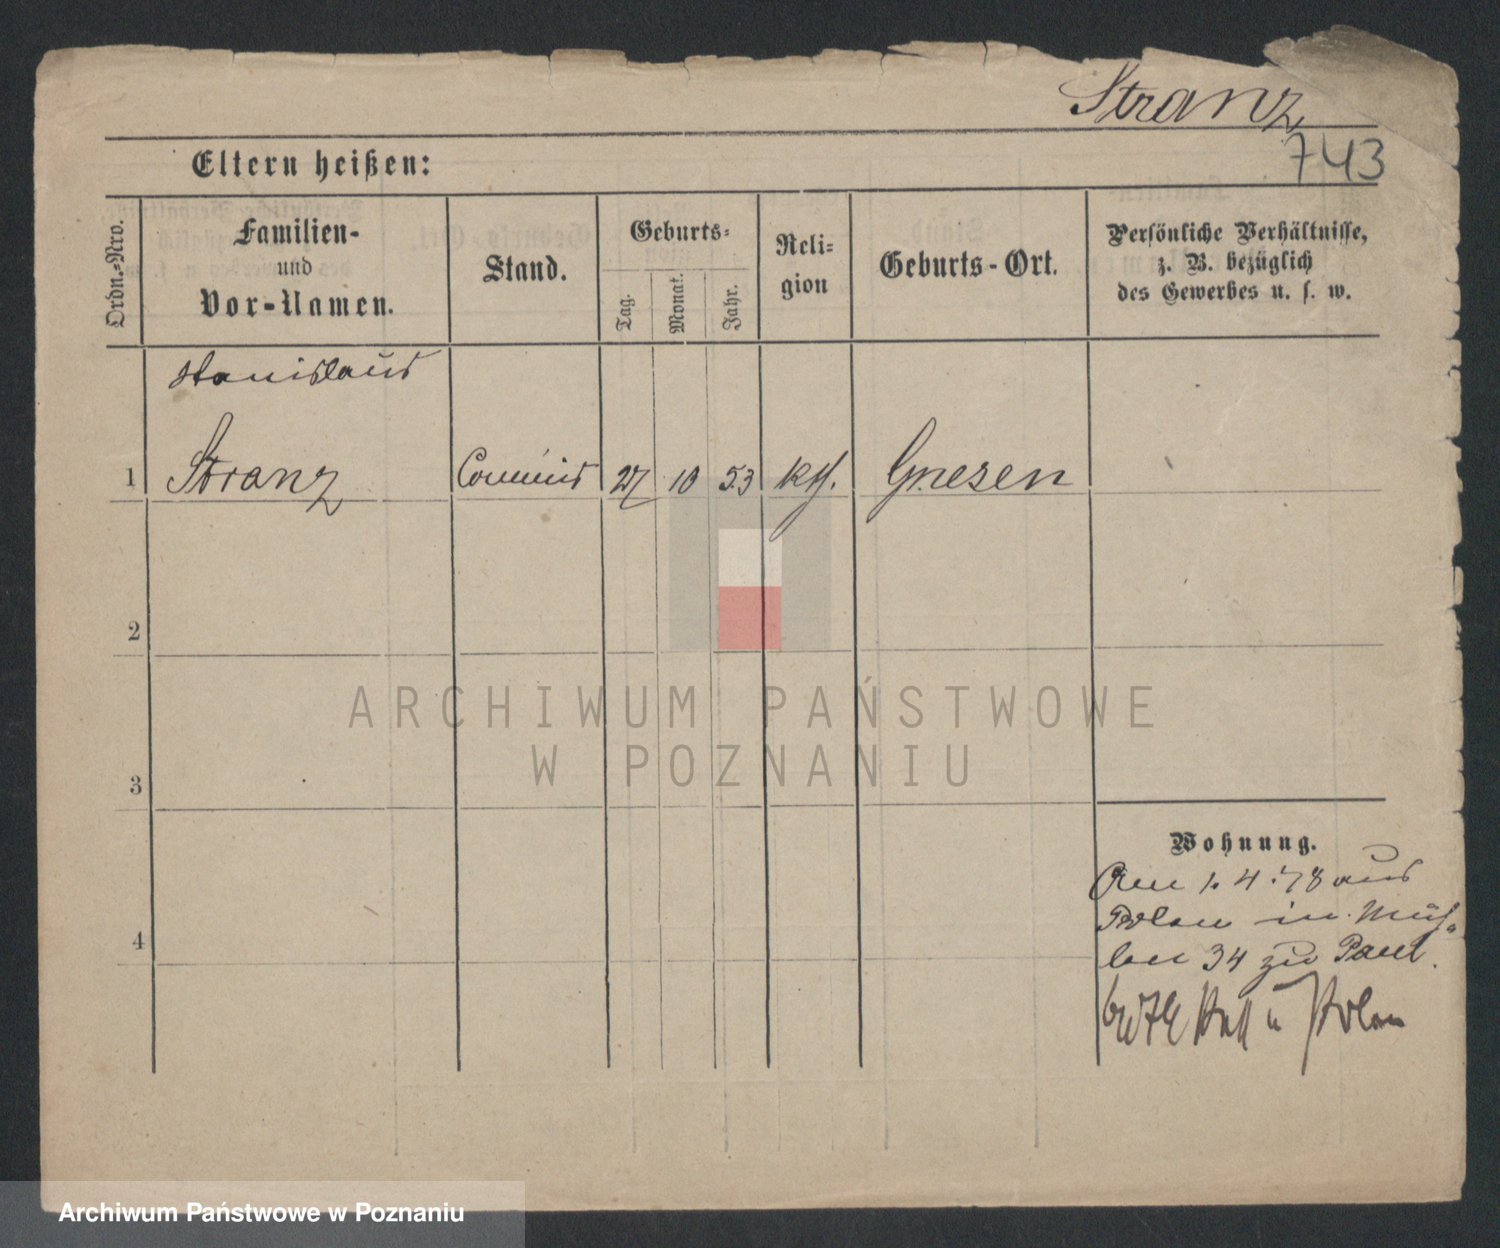 Stranz
743
Eltern heißen:
Ordn.-Nro.
Familien-
und
Vor-Namen.
Stand.
Geburts-
Tag.
Monat.
Jahr.
Reli-
gion
Geburts-Ort.
Persönliche Verhältnisse,
z. B. bezüglich
des Gewerbes u. s. w.
Stanislaus
1 Stranz Commis 27 10 53 kth. Gnesen
2
3
4
Wohnung.
Am 1. 4. 78 aus
Polen in Müh-
len 34 zu Paul
ARCHIWUM PAŃSTWOWE
W POZNANIU
Archiwum Państwowe w Poznaniu